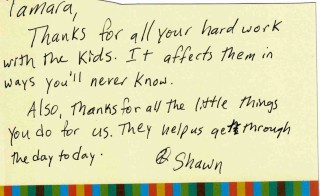 Tamara,
Thanks for all your hard work
with the kids. It affects them in
ways you'll never know.
Also, thanks for all the little things
you do for us. They help us get through
the day to day.
Shawn